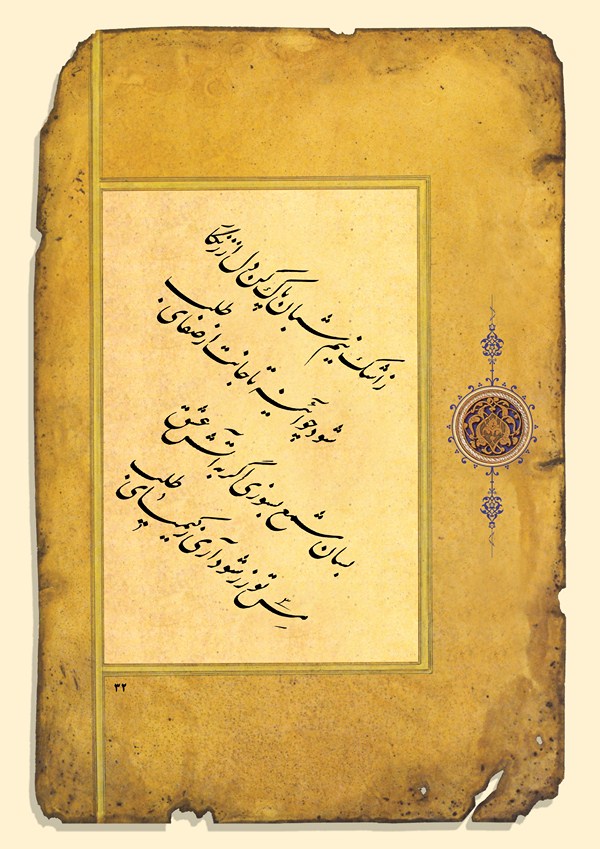 ز اشک نیم شبان پاک کن دل از زنگار
شود چو آئینه تا جانت از صفای طلب
بسان شمع بسوزی اگر به آتش عشق
مس تو زر شود آری ز کیمیای طلب
۳۲